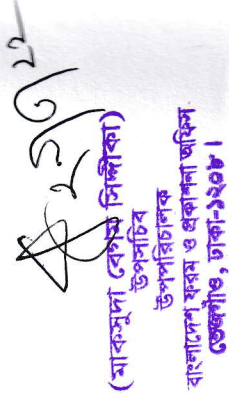 ২১/৩/২২
(মাকসুদা বেগম সিদ্দীকা)
উপসচিব
উপপরিচালক
বাংলাদেশ ফরম ও প্রকাশনা অফিস
তেজগাঁও, ঢাকা-১২০৮।